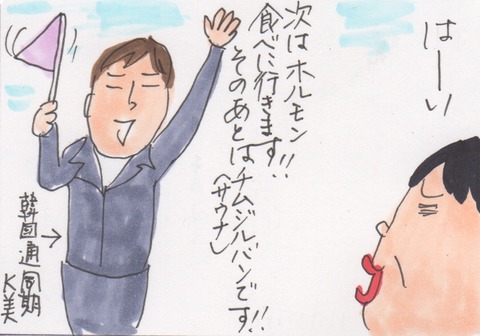 はーい
次はホルモン!!
食べに行きます!!
そのあとはチムジルバンです!!
(サウナ)
韓国通同期
K美